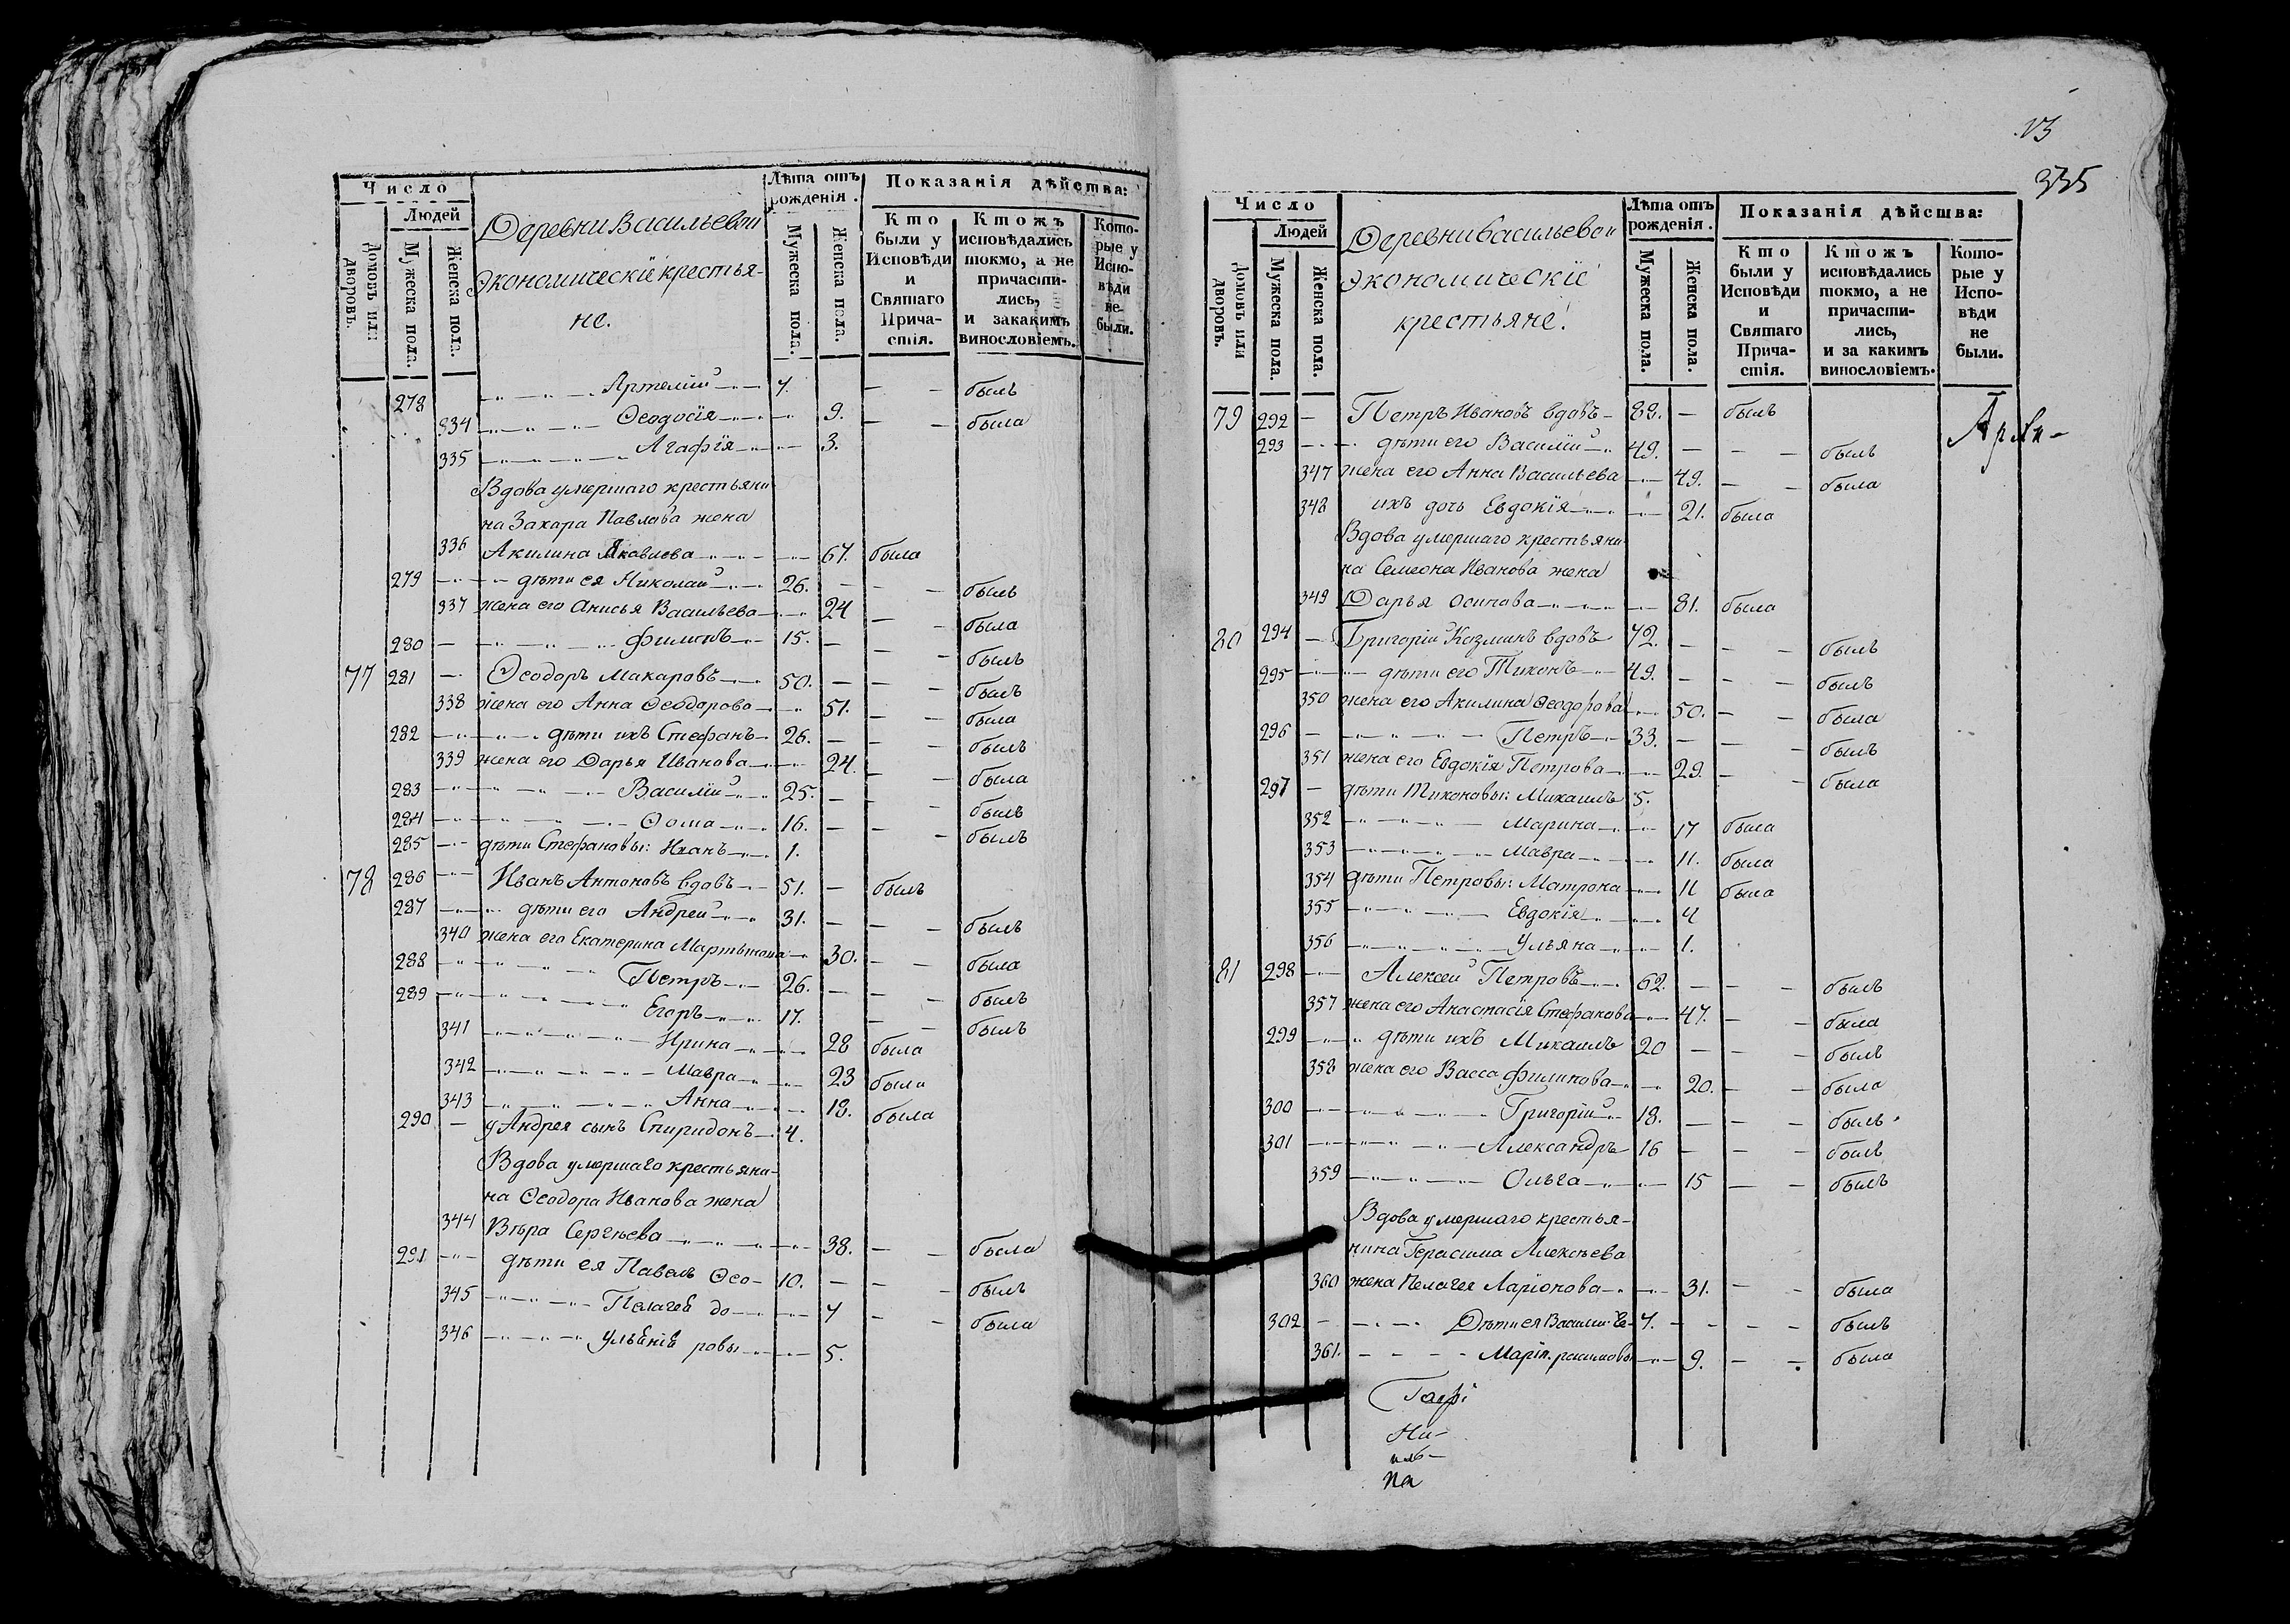 Число
Людей
Домовъ или дворовъ.
Мужеска пола.
Женска пола.
Деревни Васильевой
экономическіе крестья-
не.
Лѣта отъ рожденія.
Мужеска пола.
Женска пола.
Показанія дѣйства:
Кто были у Исповѣди и Святаго Прича-стія.
Ктожъ исповѣдались токмо, а не причасти-лись, и закакимъ винословіемъ.
Кото-рые у Испо-вѣди не были.
278 Артемій 7. — — былъ
334 Ѳеодосія 9. — — была
335 Агафія 3.
Вдова умершаго крестьяни
на Захара Павлова жена
336 Акилина Яковлева 67. была
279 дѣти ея Николай 26. — — былъ
337 жена его Анисья Васильева 24 — — была
280 Филипъ 15. — — былъ
77 281 Ѳеодоръ Макаровъ 50. — — былъ
338 жена его Анна Ѳеодорова 51. — — была
282 дѣти ихъ Стефанъ 26. — — былъ
339 жена его Дарья Иванова 24. — — была
283 Василій 25. — — былъ
284 Ѳома 16. — — былъ
285 дѣти Стефановы: Иванъ 1.
78 286 Иванъ Антоновъ вдовъ 51. — былъ
287 дѣти его Андрей 31. — — былъ
340 жена его Екатерина Мартынова 30. — — была
288 Петръ 26. — — былъ
289 Егоръ 17. — — былъ
341 Ирина 28 была
342 Мавра 23 была
343 Анна 18. была
290 — у Андрея сынъ Спиридонъ 4.
Вдова умершаго крестьяни-
на Ѳеодора Иванова жена
344 Вѣра Сергѣева 38. — — была
291 дѣти ея Павелъ Ѳео- 10. — — былъ
345 Пелагея до- 7 — — была
346 Ульянія ровы 5.
13
335
Число
Людей
Домовъ или дворовъ.
Мужеска пола.
Женска пола.
Деревни Васильевой
экономическіе
крестьяне.
Лѣта отъ рожденія.
Мужеска пола.
Женска пола.
Показанія дѣйства:
Кто были у Исповѣди и Святаго Прича-стія.
Ктожъ исповѣдались токмо, а не причасти-лись, и за какимъ винословіемъ.
Кото-рые у Испо-вѣди не были.
79 292 — Петръ Ивановъ вдовъ 88. — былъ
293 дѣти его Василій 49. — — былъ
347 жена его Анна Васильева 49. — — была
348 ихъ дочь Евдокія 21. была
Вдова умершаго крестьяни-
на Семеона Иванова жена
349 Дарья Осипова 81. была
80 294 — Григорій Козминъ вдовъ 72. — — былъ
295 дѣти его Тихонъ 49. — — былъ
350 жена его Акилина Ѳеодорова 50. — — была
296 Петръ 33. — — былъ
351 жена его Евдокія Петрова 29. — — была
297 — дѣти Тихоновы: Михаилъ 5.
352 Марина 17 была
353 Мавра 11. была
354 дѣти Петровы: Матрона 11 была
355 Евдокія 4
356 Ульяна 1.
81 298 Алексей Петровъ 62. — — былъ
357 жена его Анастасія Стефанова 47. — — была
299 дѣти ихъ Михаилъ 20 — — былъ
358 жена его Васса Филипова 20. — — была
300 Григорій 18. — — былъ
301 Александръ 16 — — былъ
359 Ольга 15 — — былъ
Вдова умершаго крестья-
нина Герасима Алексѣева
360 жена Пелагея Ларіонова 31. — — была
302 Дѣти ея Василій Ге- 7. — — былъ
361. Марія. расимовы 9. — — была
Гаврі
Ни-
на